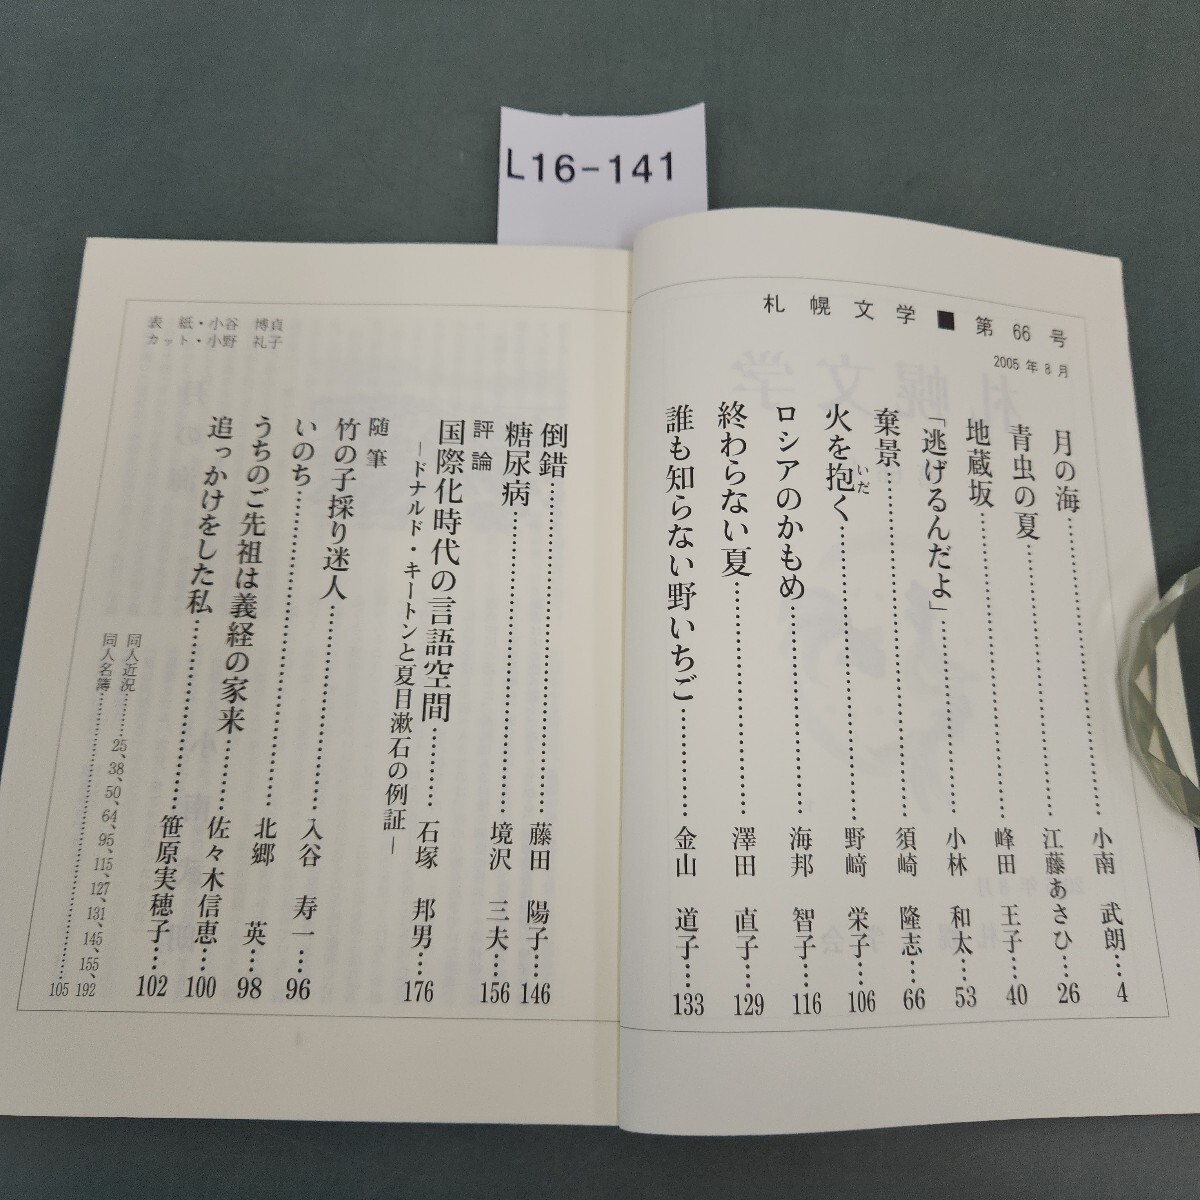 L16-141
札幌文学■第66号
2005年8月
月の海……………小南 武朗…4
青虫の夏……………江藤あさひ…26
地蔵坂……………峰田 王子…40
「逃げるんだよ」……………小林 和太…53
棄景……………須崎 隆志…66
火を抱く……………野﨑 栄子…106
いだ
ロシアのかもめ……………海邦 智子…116
終わらない夏……………澤田 直子…129
誰も知らない野いちご……………金山 道子…133
倒錯……………藤田 陽子…146
糖尿病……………境沢 三夫…156
評論
国際化時代の言語空間………石塚 邦男…176
―ドナルド・キートンと夏目漱石の例証―
随筆
竹の子採り迷人……………入谷 寿一…96
いのち……………北郷 英…98
うちのご先祖は義経の家来………佐々木信恵…100
追っかけをした私……………笹原実穂子…102
同人近況………25、38、50、64、95、115、127、131、145、155、192
同人名簿……………105
表 紙・小谷 博貞
カット・小野 礼子